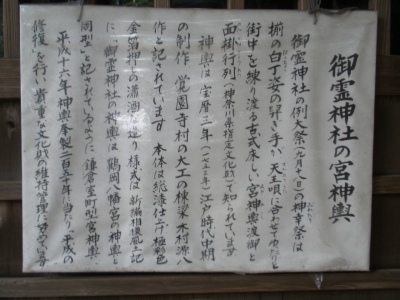 御霊神社の宮神輿
御霊神社の例大祭(九月十八日)の神幸祭は
揃の白丁姿の舁き手が天王唄に合わせてゆったりと
街中を練り渡る古式床しい宮神輿渡御と
面掛行列(神奈川県指定文化財)で知られています
神輿は宝暦三年(一七五三年)江戸時代中期
の制作 覚園寺村の大工の棟梁 木村源八
作と記されています 本体は総漆仕上げ極彩色
金箔押しの瀟洒な造り様式は新編相模風土記
に「御霊神社の神輿は鶴岡八幡宮の神輿と
同型」と記されているように鎌倉室町型宮神輿
平成十六年神輿奉製二百五十年に当り平成の
修復を行い貴重な文化財の維持管理に努めています